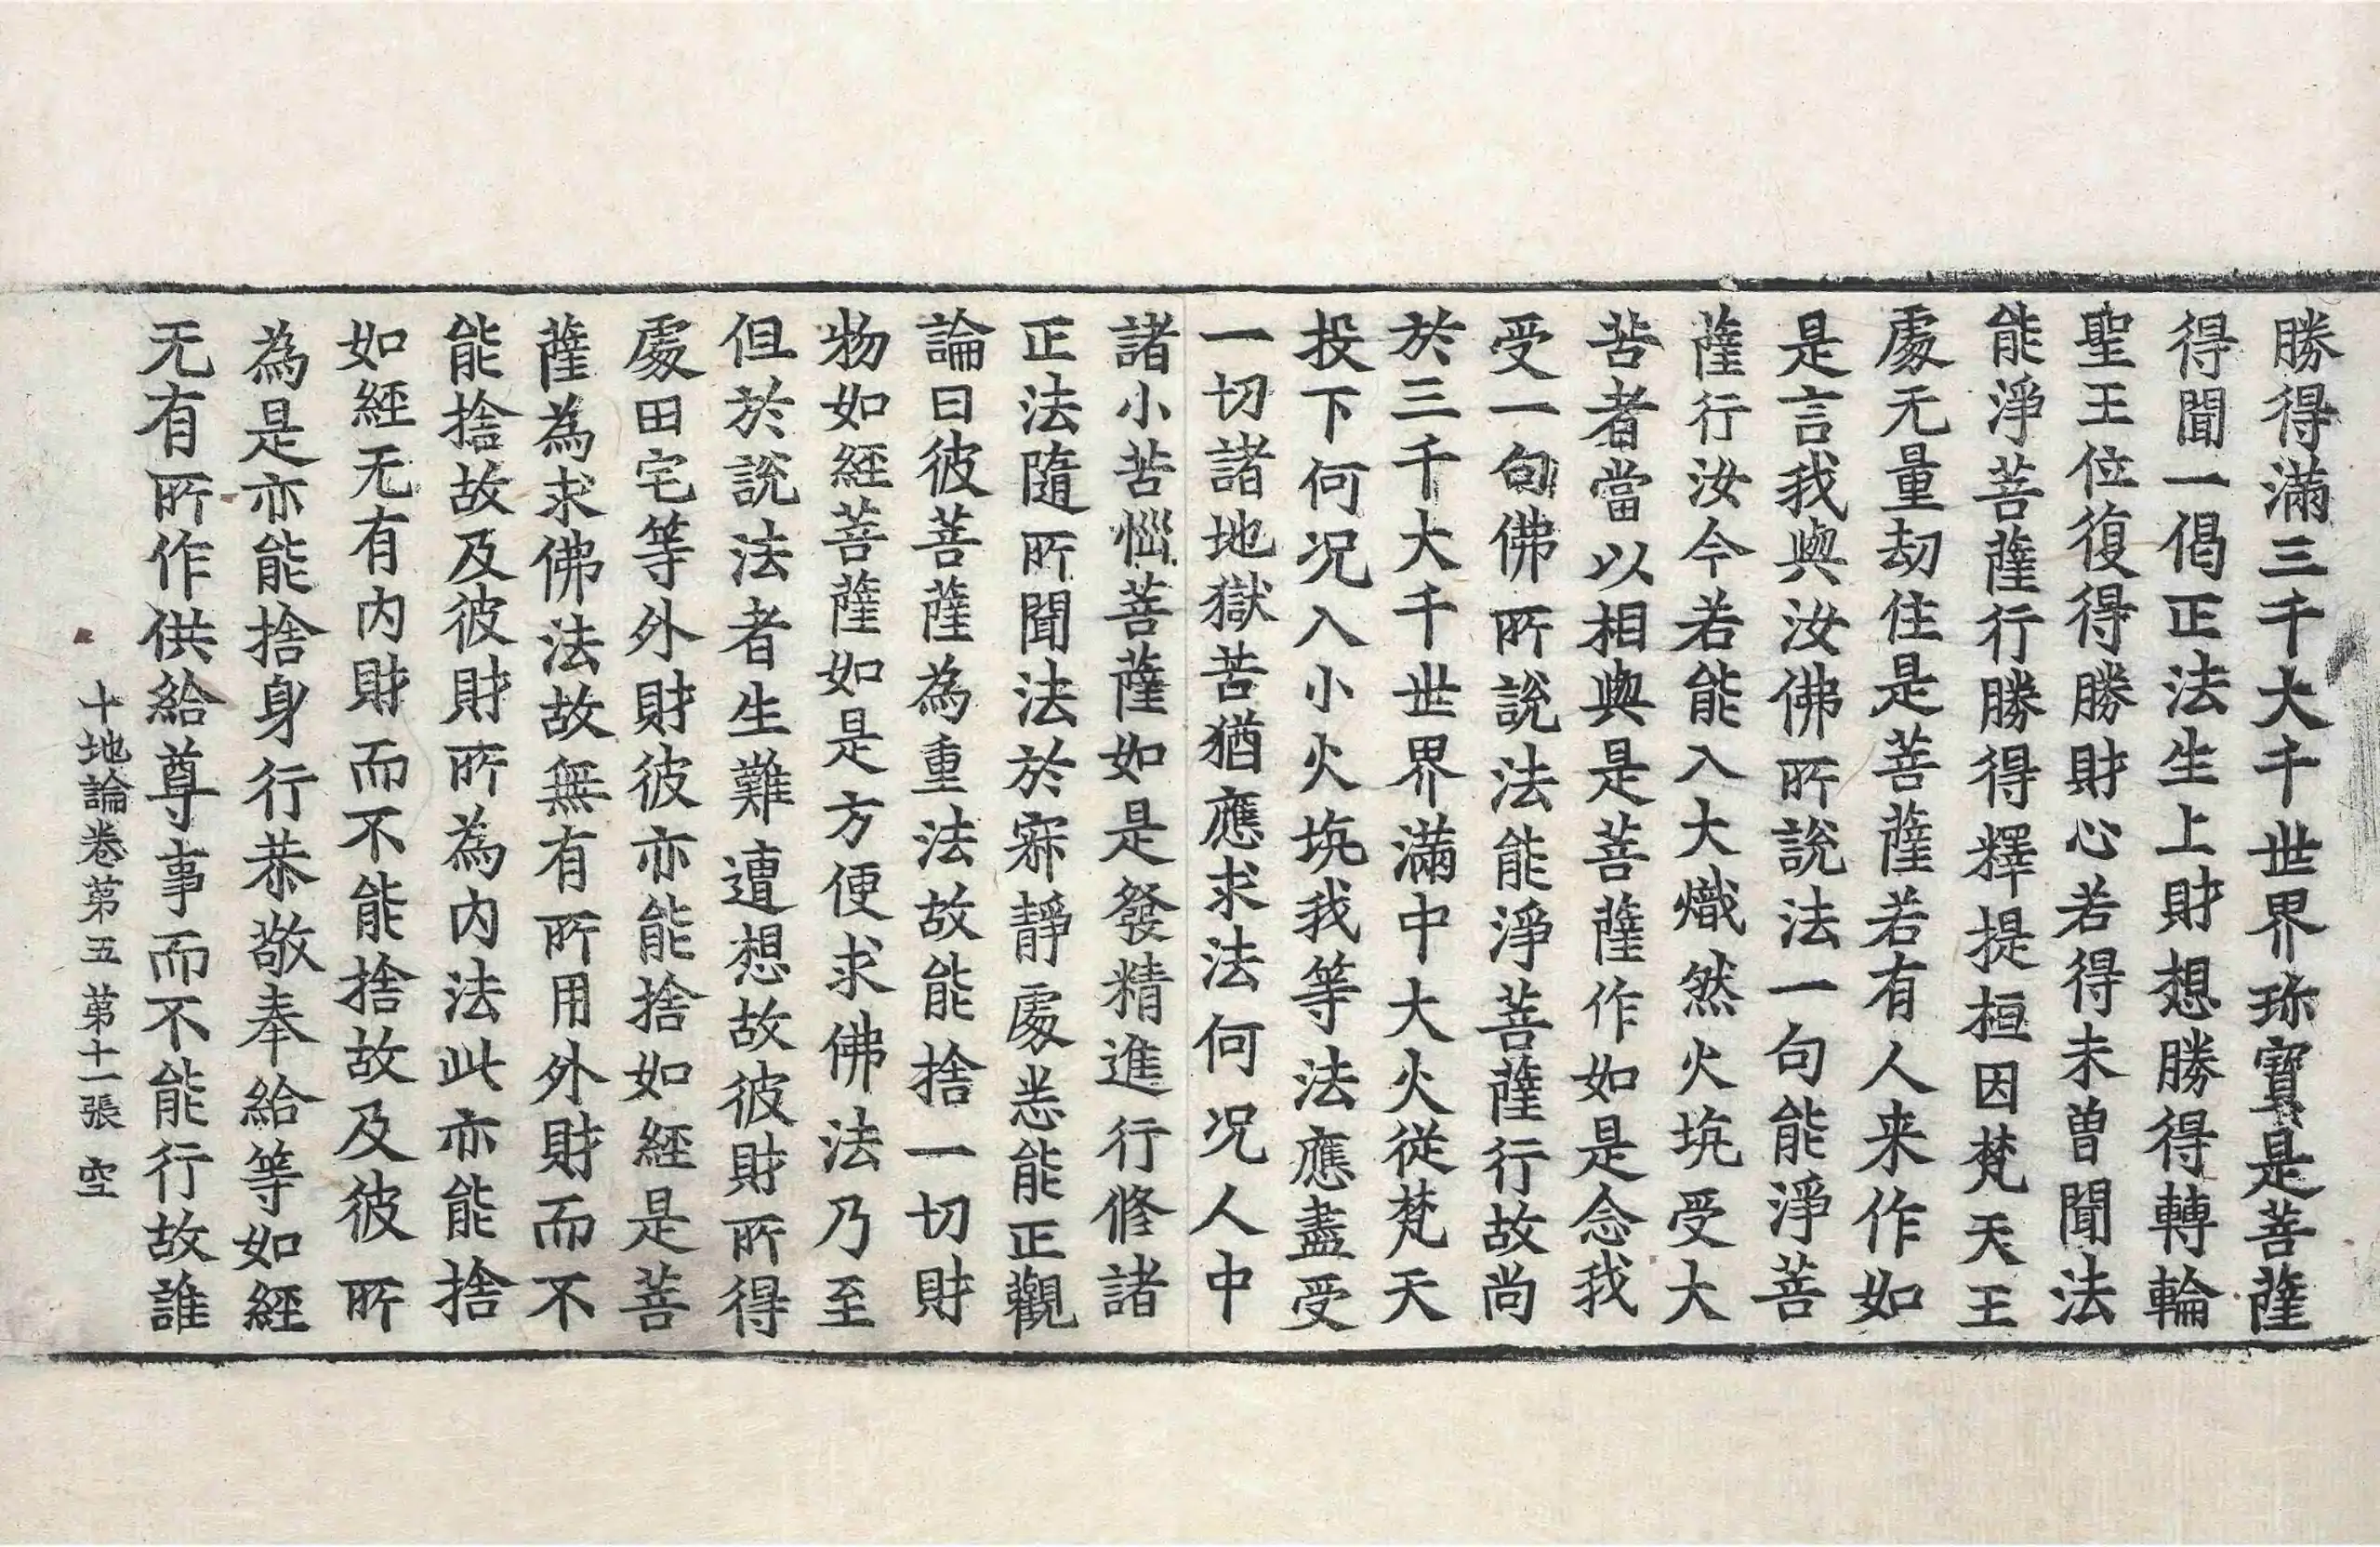 勝得滿三千大千世界珎寳是菩薩
得聞一偈正法生上財想勝得轉輪
聖王位復得勝財心若得未曽聞法
能淨菩薩行勝得釋提桓因梵天王
䖏无量劫住是菩薩若有人来作如
是言我與汝佛所說法一句能淨菩
薩行汝今若能入大熾然火坑受大
苦者當以相與是菩薩作如是念我
受一句佛所說法能淨菩薩行故尚
於三千大千世界滿中大火從梵天
投下何况入小火坑我等法應盡受
一切諸地獄苦猶應求法何况人中
諸小苦惱菩薩如是發精進行修諸
正法隨所聞法於寂靜䖏悉能正觀
論曰彼菩薩為重法故能捨一切財
物如經菩薩如是方便求佛法乃至
但於說法者生難遭想故彼財所得
䖏田宅等外財彼亦能捨如經是菩
薩為求佛法故無有所用外財而不
能捨故及彼財所為内法此亦能捨
如經无有内財而不能捨故及彼所
為是亦能捨身行恭敬奉給等如經
无有所作供給尊事而不能行故誰
十地論卷第五 第十一張 空